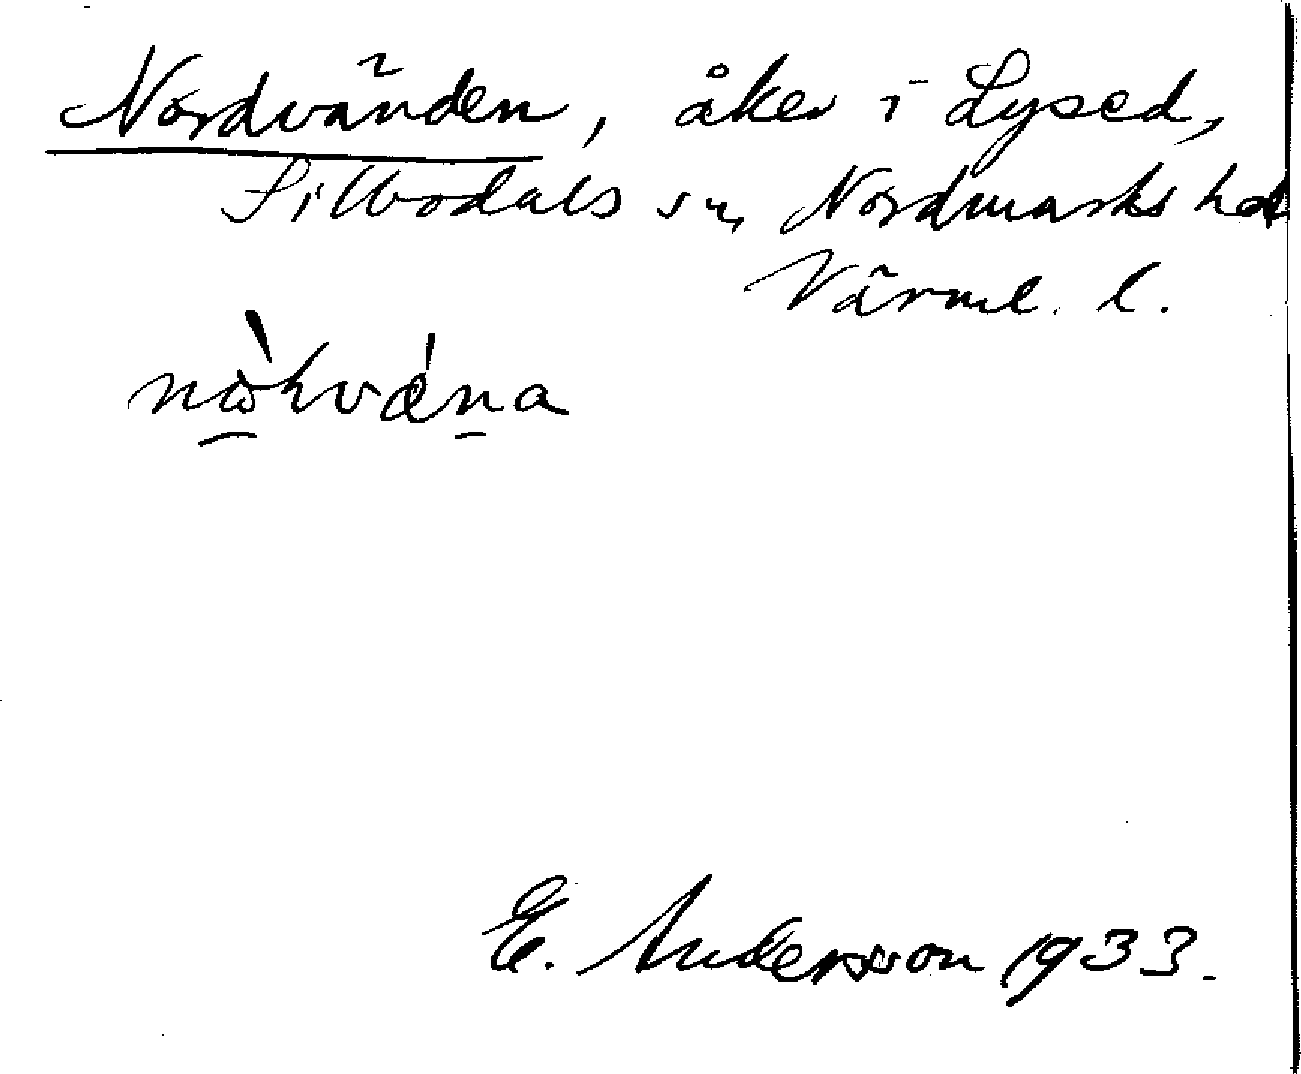 Nordvänden, åker i Lysed,
Sillbodals sn, Nordmarks hd
Värml. l.
E. Andersson 1933.